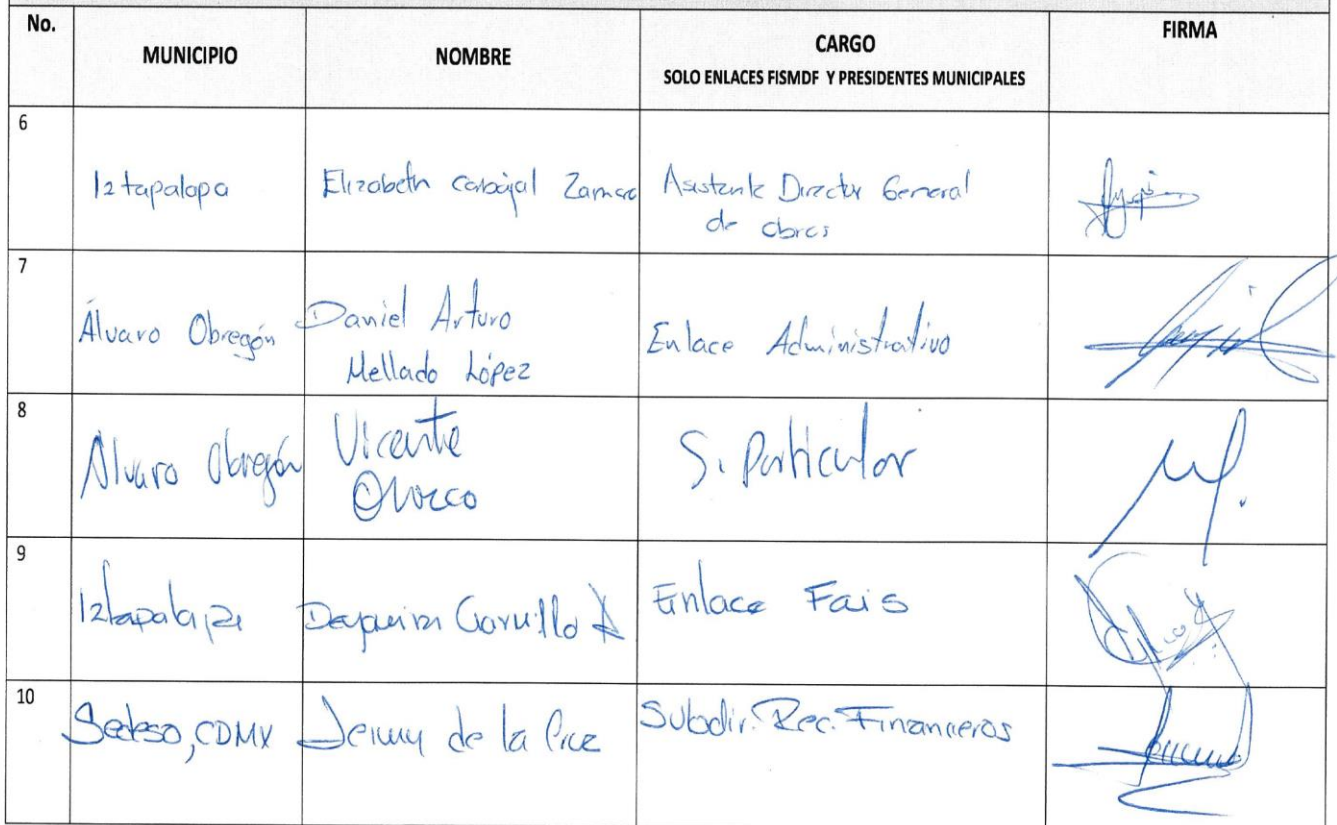 No.
MUNICIPIO
NOMBRE
CARGO
SOLO ENLACES FISMDF Y PRESIDENTES MUNICIPALES
FIRMA
6
Iztapalapa
Elizabeth Carbajal Zamora
Asistente Director General
de obras
7
Álvaro Obregón
Daniel Arturo
Mellado López
Enlace Administrativo
8
Alvaro Obregón
Vicente
Orozco
S. Particular
9
Iztapalapa
Carrillo
Enlace Fais
10
Sedeso, CDMX
Jenny de la Cruz
Subdir. Rec. Financieros